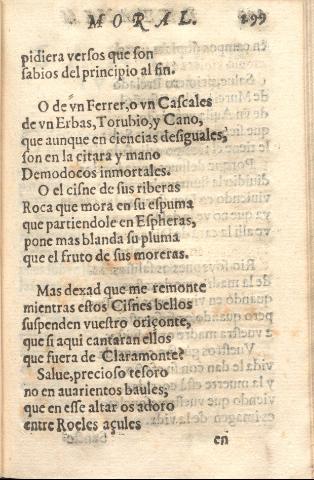 MORAL. 299
pidiera versos que son
sabios del principio al fin.
O de vn Ferrer, o vn Cascales
de vn Erbas, Torubio, y Cano,
que aunque en ciencias desiguales,
son en la citara y mano
Demodocos inmortales.
O el cisne de sus riberas
Roca que mora en su espuma
que partiendole en Espheras,
pone mas blanda su pluma
que el fruto de sus moreras.
Mas dexad que me remonte
mientras estos Cisnes bellos
suspenden vuestro oriçonte,
que si aqui cantaran ellos
que fuera de Claramonte?
Salue, precioso tesoro
no en auarientos baules;
que en esse altar os adoro
entre Roeles açules
en